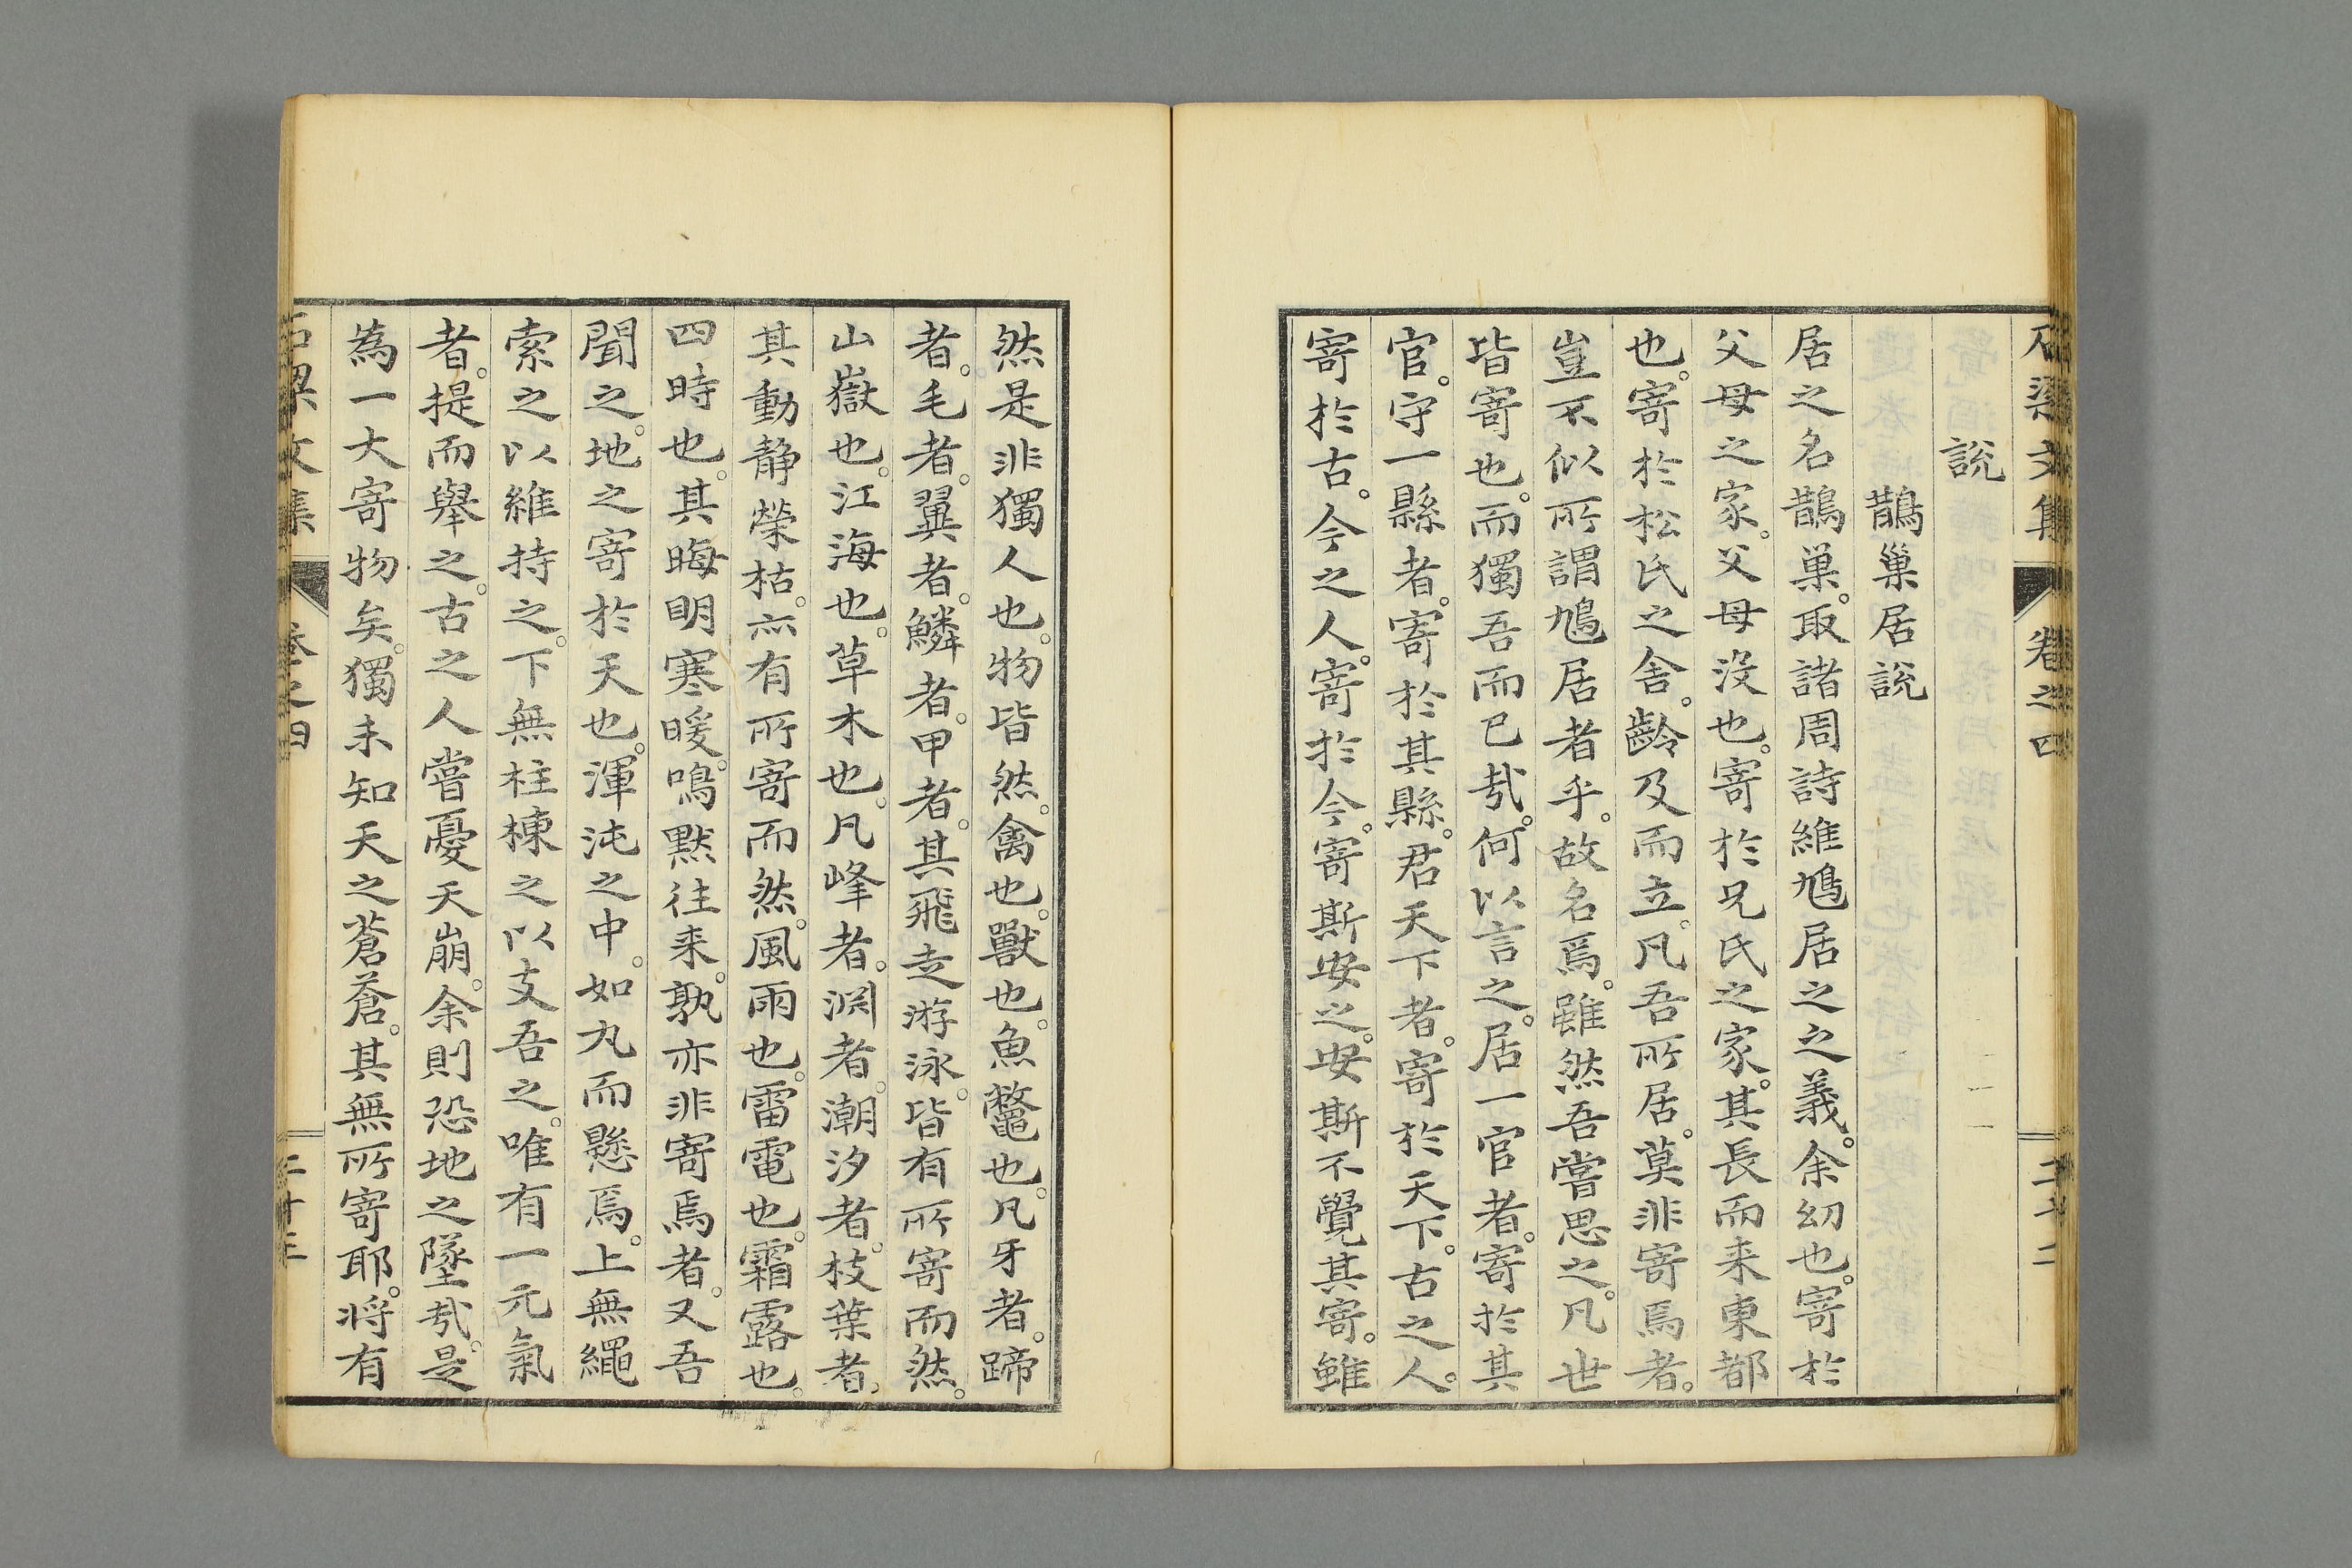 石梁文集 卷之四 二十二
說
鵲巢居說
居之名鵲巢。取諸周詩維鳩居之之義。余幼也。寄於
父母之家。父母沒也。寄於兄氏之家。其長而来東都
也。寄於松氏之舍。齡及而立。凡吾所居。莫非寄焉者。
豈不似所謂鳩居者乎。故名焉。雖然吾嘗思之。凡世
皆寄也。而獨吾而已哉。何以言之。居一官者。寄於其
官。守一縣者。寄於其縣。君天下者。寄於天下。古之人。
寄於古。今之人。寄於今。寄斯安之。安斯不覺其寄。雖
然是非獨人也。物皆然。禽也。獸也。魚鼈也。凡牙者。蹄
者。毛者。翼者。鱗者。甲者。其飛走游泳。皆有所寄而然。
山嶽也。江海也。草木也。凡峰者。渊者。潮汐者。枝葉者。
其動静榮枯。亦有所寄而然。風雨也。雷電也。霜露也。
四時也。其晦明寒暖。鳴默往来。孰亦非寄焉者。又吾
聞之。地之寄於天也。渾沌之中。如丸而懸焉。上無繩
索之以維持之。下無柱棟之以支吾之。唯有一元氣
者。提而舉之。古之人嘗憂天崩。余則恐地之墜哉。是
為一大寄物矣。獨未知天之蒼蒼。其無所寄耶。将有
石梁文集 卷之四 二十三